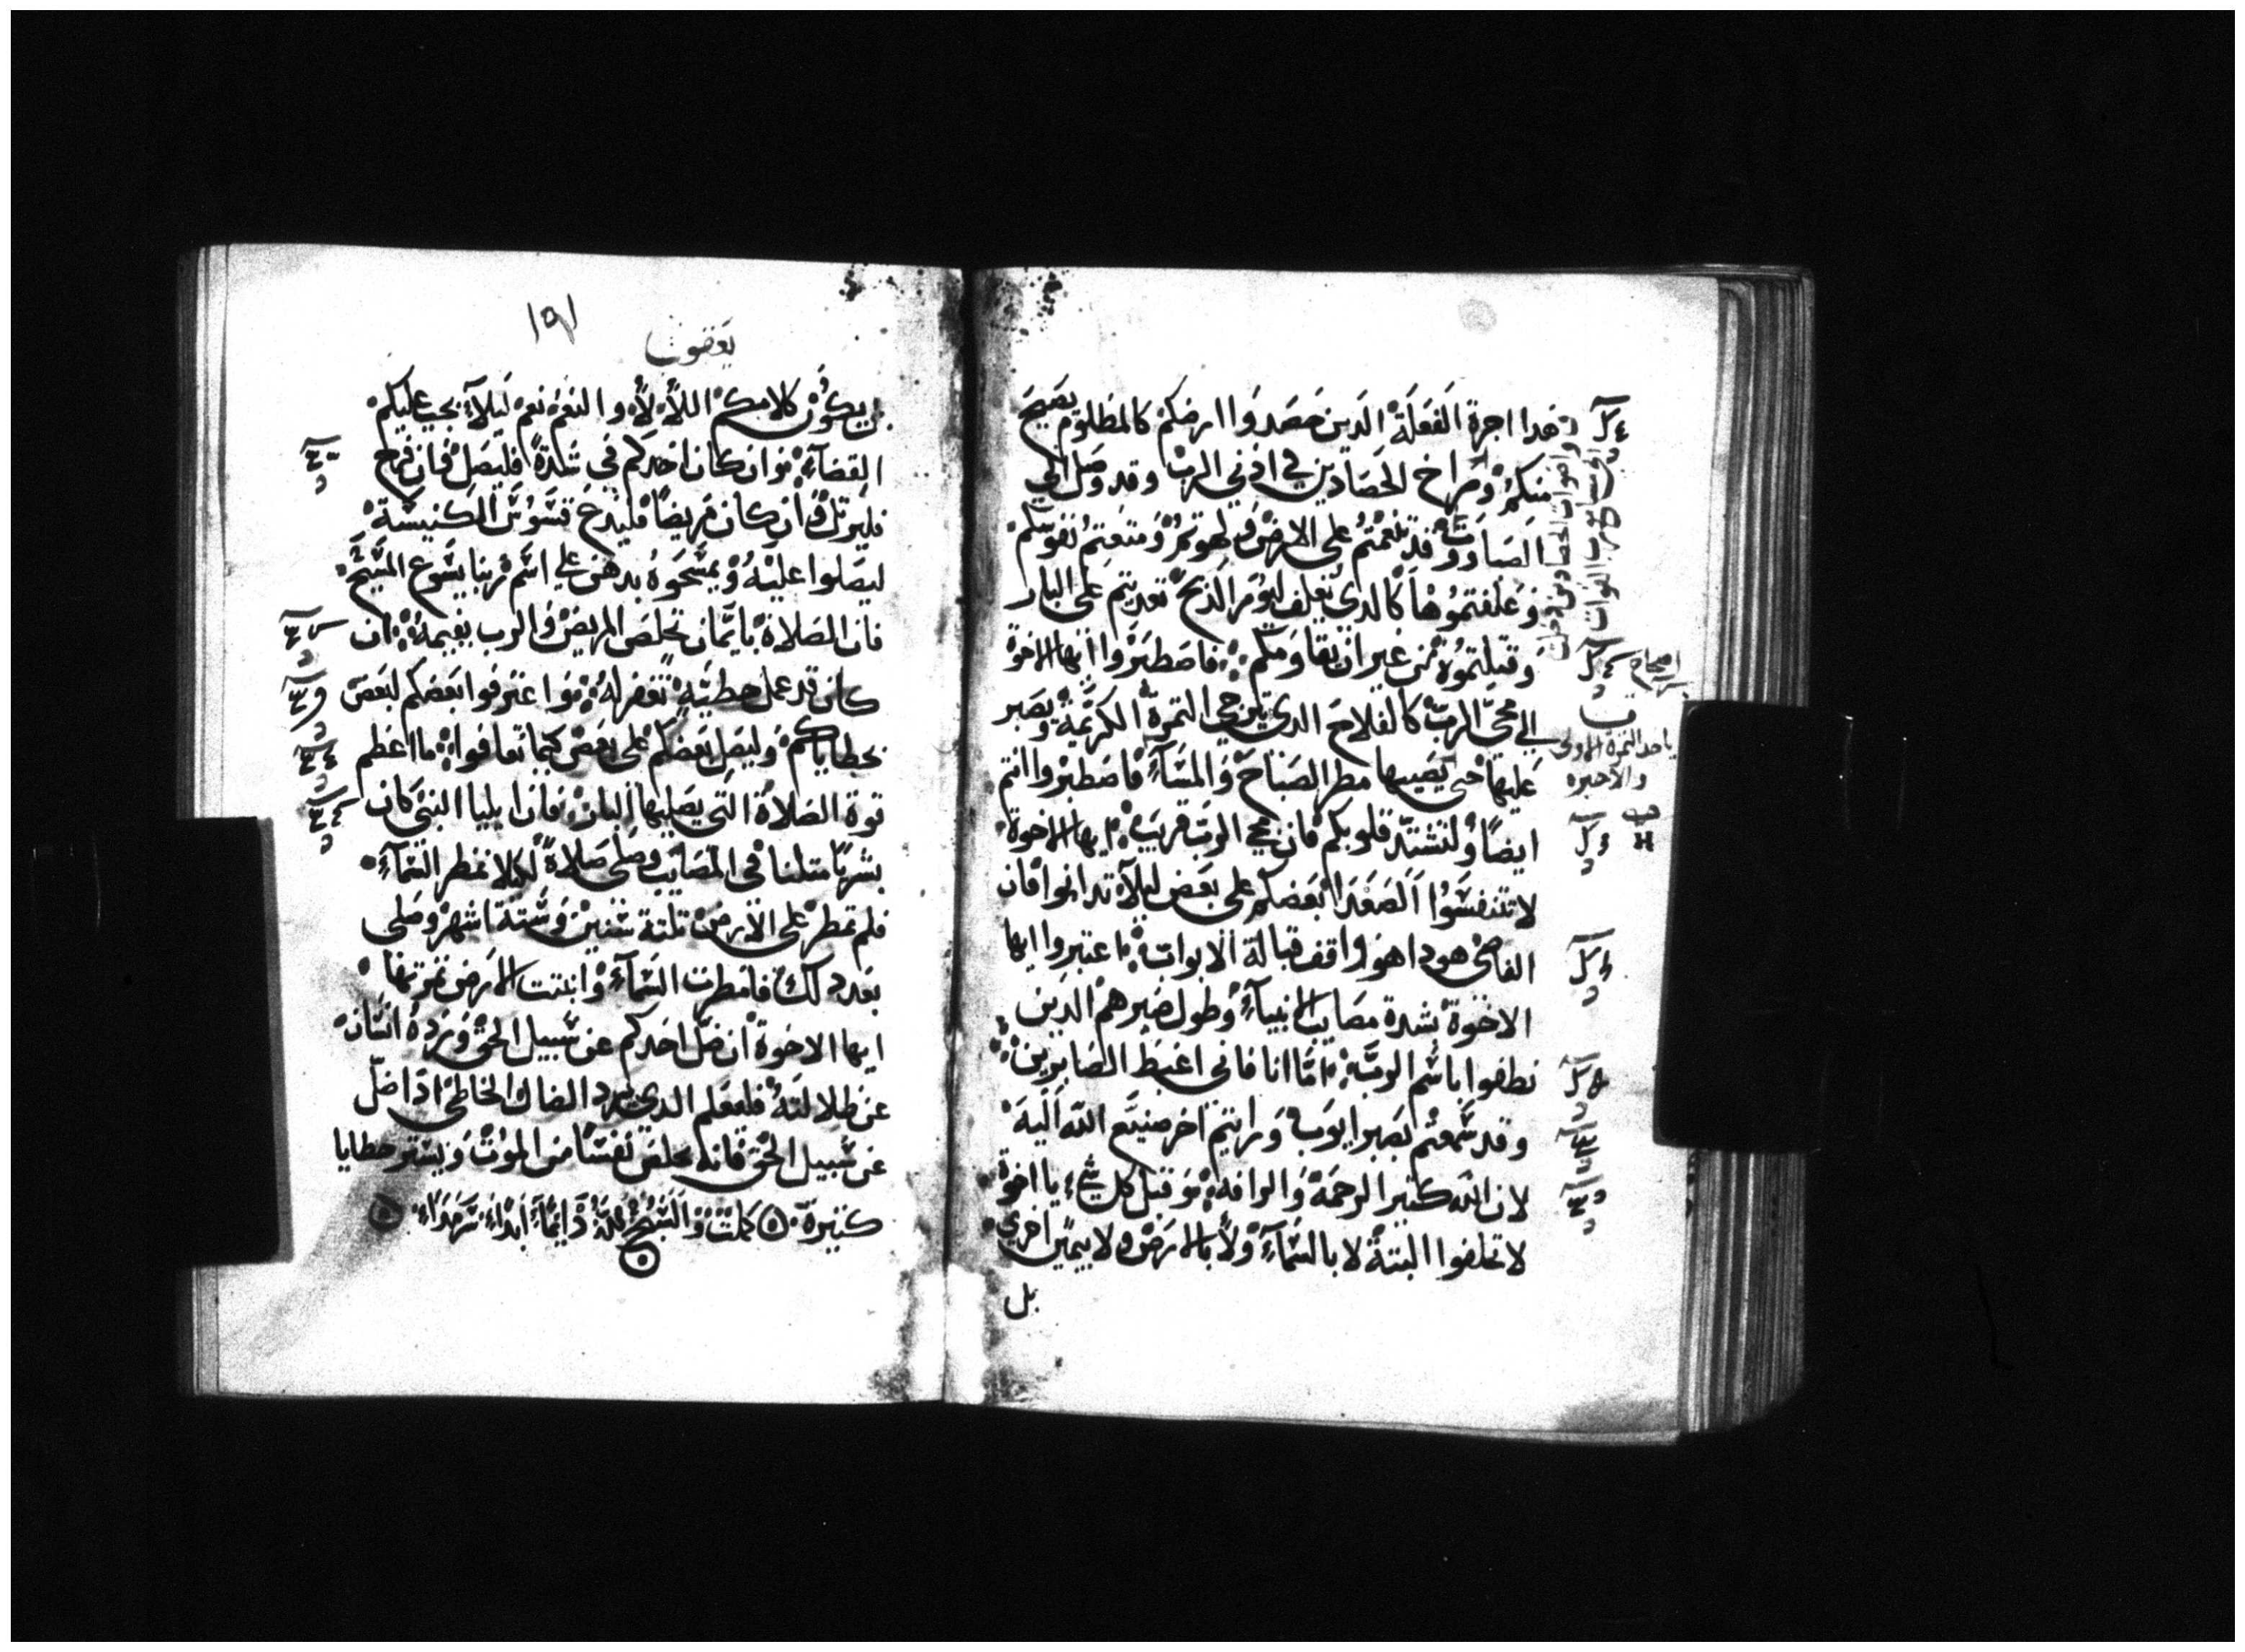 فهدا اجرة الفعلة الدين حصدوا ارضكم كالمظلوم يصيح
منكم وصراخ الحصادين في ادني الرب وقد وصل الي
الصاووت قد تنعمتم علي الارض ولهوتم ومتعتم نفوسكم
وعلفتموها كالدي يعلف ليوم الدبح تعديتم علي البار
وقتلتموه من غير ان يقاومكم فاصطبروا ايها الاخوة
الي مجي الرب كالفلاح الدي يترجي الثمرة الكريمة ويصبر
عليها حتي يصيبها مطر الصباح والمسآء فاصطبروا انتم
ايضا ولتشتد قلوبكم فان مجي الرب قريب ايها الاخوة
لا تتنفسوا الصعدا بعضكم علي بعض ليلا تدانوا فان
القاضي هودا هو واقف قبالة الابواب اعتبروا ايها
الاخوة بشدة مصايب الانبيآء وطول صبرهم الدين
نطقوا باسم الرب اما انا فاني اغبط الصابرين
وقد سمعتم بصبر ايوب ورايتم اخر صنيع الله اليه
لان الله كثير الرحمة والرافة وقبل كل شيء يا اخوة
لا تحلفوا البتة لا بالسمآء ولا بالارض ولا بيمين اخري
بل
اصحاح
ياخد الثمرة الاولي
والاخيره
١٩١
يعقوب
بل يكون كلامكم اللا لا والنعم نعم ليلا يجب عليكم
القضآء وان كان احدكم في شدة فليصل فان فرح
فليرتل وان كان مريضا فليدع قسوس الكنيسة
ليصلوا عليه ويمسحوه بدهن علي اسم ربنا يسوع المسيح
فان الصلاة بايمان تخلص المريض والرب يقيمه ان
كان قد عمل خطية تغفر له واعترفوا بعضكم لبعض
بخطاياكم وليصل بعضكم علي بعض كيما تعافوا ما اعظم
قوة الصلاة التي يصليها البار فان ايليا النبي كان
بشريا مثلنا في المصايب وصلي صلاة لكيلا تمطر السمآء
فلم تمطر علي الارض ثلثة سنين وستة اشهر وصلي
بعد دلك فامطرت السمآء وانبتت الارض ثمرتها
ايها الاخوة ان ضل احدكم عن سبيل الحق ورده انسان
عن ضلالته فليعلم الدي يرد الضال الخاطي ادا ضل
عن سبيل الحق فانه يخلص نفسا من الموت ويستر خطايا
كثيرة كملت والسبح لله دايما ابدا سرمدا